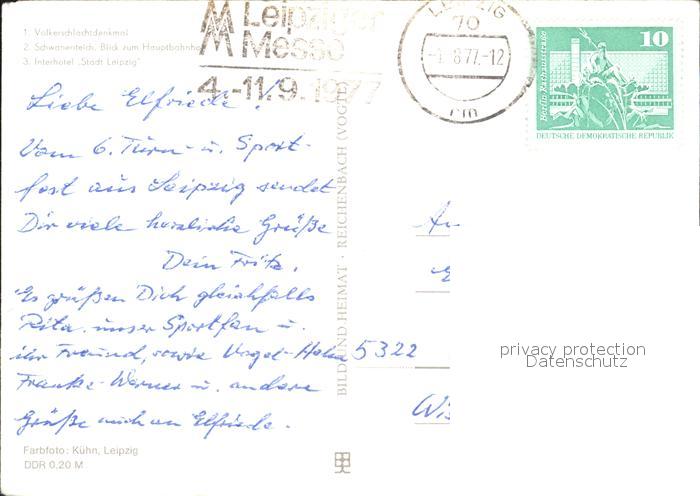 1. Völkerschlachtdenkmal
2. Schwanenteich, Blick zum Hauptbahnho
3. Interhotel „Stadt Leipzig"
MM Leipziger
Messe
4.-11.9.1977
LEIPZIG
70
8.77.-12
rm
10
Berlin, Rathausstraße
DEUTSCHE DEMOKRATISCHE REPUBLIK
Liebe Elfriede!
Vom 6. Turn- u. Sport-
fest aus Leipzig sendet
Dir viele herzliche Grüße
Dein Fritz.
Es grüßen Dich gleichfalls
Rita, unser Sportfan u.
ihr Freund, sowie Vogel-Hahn
Franke-Werner u. andere
Grüße auch an Elfriede.
BILD UND HEIMAT · REICHENBACH (VOGTL)
An
5322
privacy protection
Datenschutz
Farbfoto: Kühn, Leipzig
DDR 0,20 M